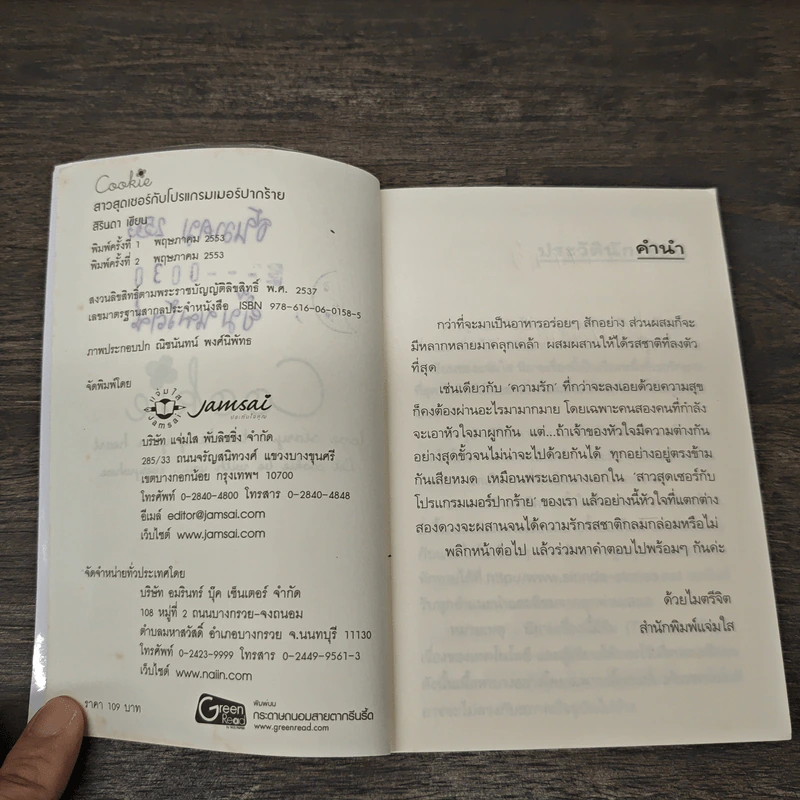 Cookie
สาวสุดเชอร์กับโปรแกรมเมอร์ปากร้าย
สิรินดา เขียน
พิมพ์ครั้งที่ 1 พฤษภาคม 2553
พิมพ์ครั้งที่ 2 พฤษภาคม 2553
สงวนลิขสิทธิ์ตามพระราชบัญญัติลิขสิทธิ์ พ.ศ. 2537
เลขมาตรฐานสากลประจำหนังสือ ISBN 978-616-06-0158-5
ภาพประกอบปก ณิชนันทน์ พงศ์นิพัทธ
จัดพิมพ์โดย
แจ่มใส
JAMSAI
Jamsai
บริษัท แจ่มใส พับลิชชิ่ง จำกัด
285/33 ถนนจรัญสนิทวงศ์ แขวงบางขุนศรี
เขตบางกอกน้อย กรุงเทพฯ 10700
โทรศัพท์ 0-2840-4800 โทรสาร 0-2840-4848
อีเมล์ editor@jamsai.com
เว็บไซต์ www.jamsai.com
จัดจำหน่ายทั่วประเทศโดย
บริษัท อมรินทร์ บุ๊ค เซ็นเตอร์ จำกัด
108 หมู่ที่ 2 ถนนบางกรวย-จงถนอม
ตำบลมหาสวัสดิ์ อำเภอบางกรวย จ.นนทบุรี 11130
โทรศัพท์ 0-2423-9999 โทรสาร 0-2449-9561-3
เว็บไซต์ www.naiin.com
ราคา 109 บาท
Green Read
พิมพ์บน
กระดาษถนอมสายตากรีนรี้ด
www.greenread.com
คำนำ
กว่าที่จะมาเป็นอาหารอร่อยๆ สักอย่าง ส่วนผสมก็จะ
มีหลากหลายมาคลุกเคล้า ผสมผสานให้ได้รสชาติที่ลงตัว
ที่สุด
เช่นเดียวกับ 'ความรัก' ที่กว่าจะลงเอยด้วยความสุข
ก็คงต้องผ่านอะไรมามากมาย โดยเฉพาะคนสองคนที่กำลัง
จะเอาหัวใจมาผูกกัน แต่...ถ้าเจ้าของหัวใจมีความต่างกัน
อย่างสุดขั้วจนไม่น่าจะไปด้วยกันได้ ทุกอย่างอยู่ตรงข้าม
กันเสียหมด เหมือนพระเอกนางเอกใน 'สาวสุดเชอร์กับ
โปรแกรมเมอร์ปากร้าย' ของเรา แล้วอย่างนี้หัวใจที่แตกต่าง
สองดวงจะผสานจนได้ความรักรสชาติกลมกล่อมหรือไม่
พลิกหน้าต่อไป แล้วร่วมหาคำตอบไปพร้อมๆ กันค่ะ
ด้วยไมตรีจิต
สำนักพิมพ์แจ่มใส